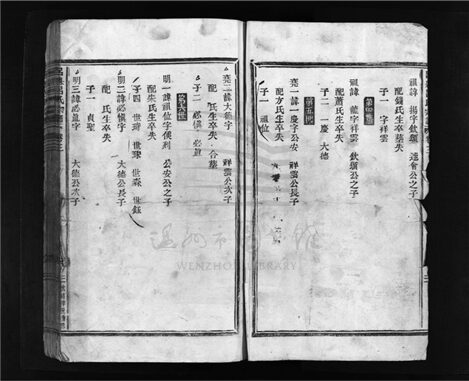 祖諱 揚字欽順 遠會公之子
配錢氏生卒失 葬失
子一 字祥雲
第四世
祖諱 龍字祥雲 欽順公之子
配蕭氏生卒失
子二 一慶 大德
第五世
堯一諱一慶字公安 祥雲公長子
配方氏生卒失
子一 祖位
堯二諱大德字 祥雲公次子
配 氏生卒失 合葬
子二 必慎 必宣
第六世
明一諱祖位字侯利 公安公之子
配朱氏生卒失
子四 世琦 世琢 世森 世鈺
明二諱必慎字 大德公長子
配 氏生卒失
明三諱必宣字 大德公次子
子一 貞聖
温州市图书馆
WENZHOU LIBRARY